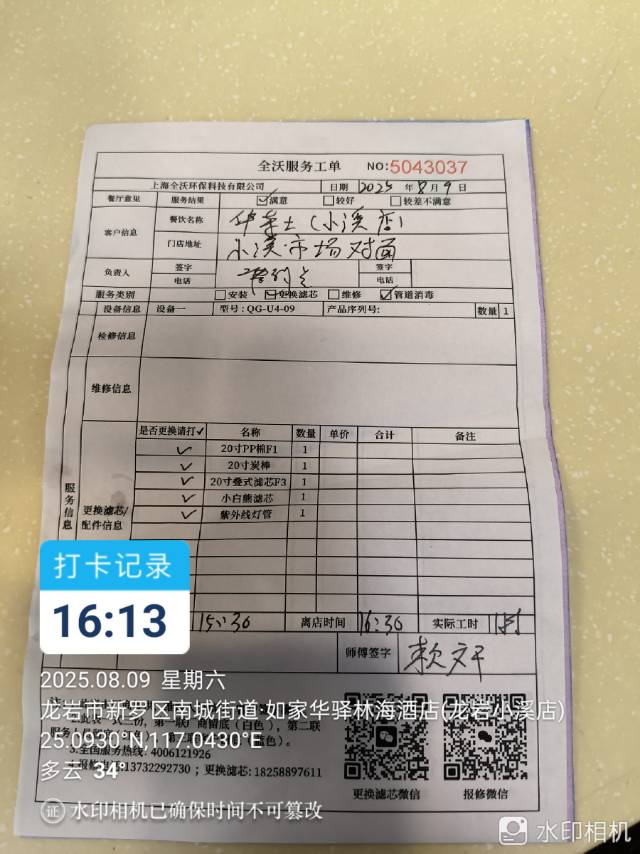 全沃服务工单 NO:5043037
上海全沃环保科技有限公司 日期 2025 年 8 月 9 日
餐厅意见 服务结果 ☑满意 □较好 □较差不满意
客户信息 餐饮名称 华莱士(小溪店)
门店地址 小溪市场对面
负责人 签字 签字
电话 电话
服务类别 □安装 ☑更换滤芯 □维修 ☑管道消毒
设备信息 设备一 型号:QG-U4-09 产品序列号: 数量 1
检修信息
维修信息
服务信息
更换滤芯/配件信息
是否更换请打✓ 名称 数量 单价 合计 备注
✓ 20寸PP棉F1 1
✓ 20寸炭棒 1
✓ 20寸叠式滤芯F3 1
✓ 小白熊滤芯 1
✓ 紫外线灯管 1
打卡记录
16:13
15:30 离店时间 16:30 实际工时
师傅签字
2025.08.09 星期六
龙岩市新罗区南城街道·如家华驿林海酒店(龙岩小溪店)
25.0930°N,117.0430°E
3.全国服务热线: 4006121926
多云 34°
13732292730 ; 更换滤芯: 18258897611
更换滤芯微信 报修微信
证 水印相机已确保时间不可篡改
水印相机